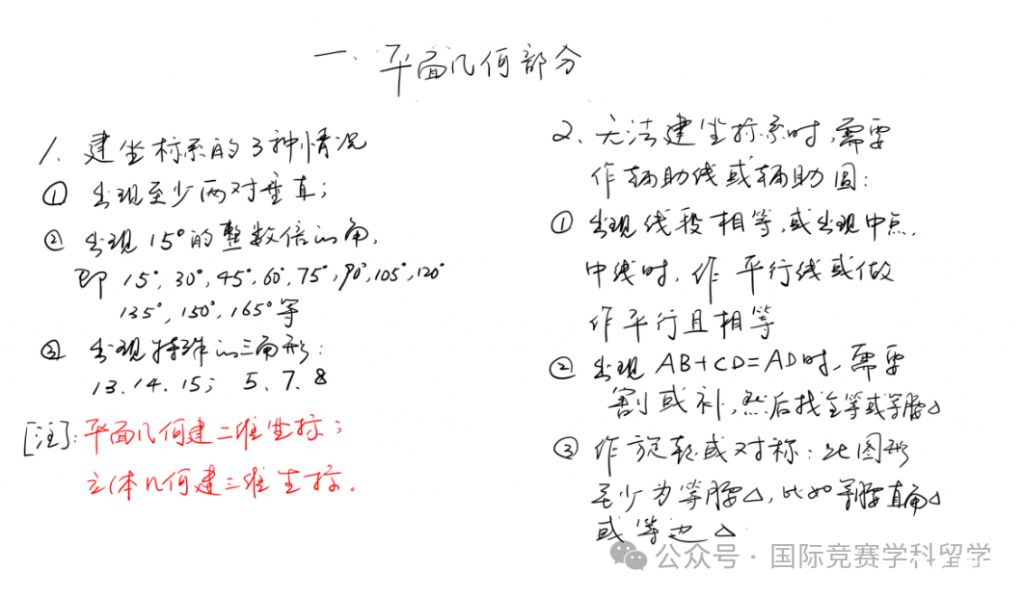 一. 平面几何部分
1. 建坐标系的3种情况
① 出现至少两对垂直;
② 出现15°的整数倍的角,
即 15°,30°,45°,60°,75°,90°,105°,120°
135°,150°,165°等
③ 出现特殊的三角形:
13.14.15; 5.7.8
[注]: 平面几何建二维坐标;
立体几何建三维坐标.
2. 无法建坐标系时,需要
作辅助线或辅助圆:
① 出现线段相等,或出现中点,
中线时,作 平行线或做
作平行且相等
② 出现 AB+CD=AD时,需要
割或补,然后找全等或等腰△
③ 作旋转或对称:此图形
至少为等腰△,比如等腰直角△
或等边△
公众号·国际竞赛学科留学